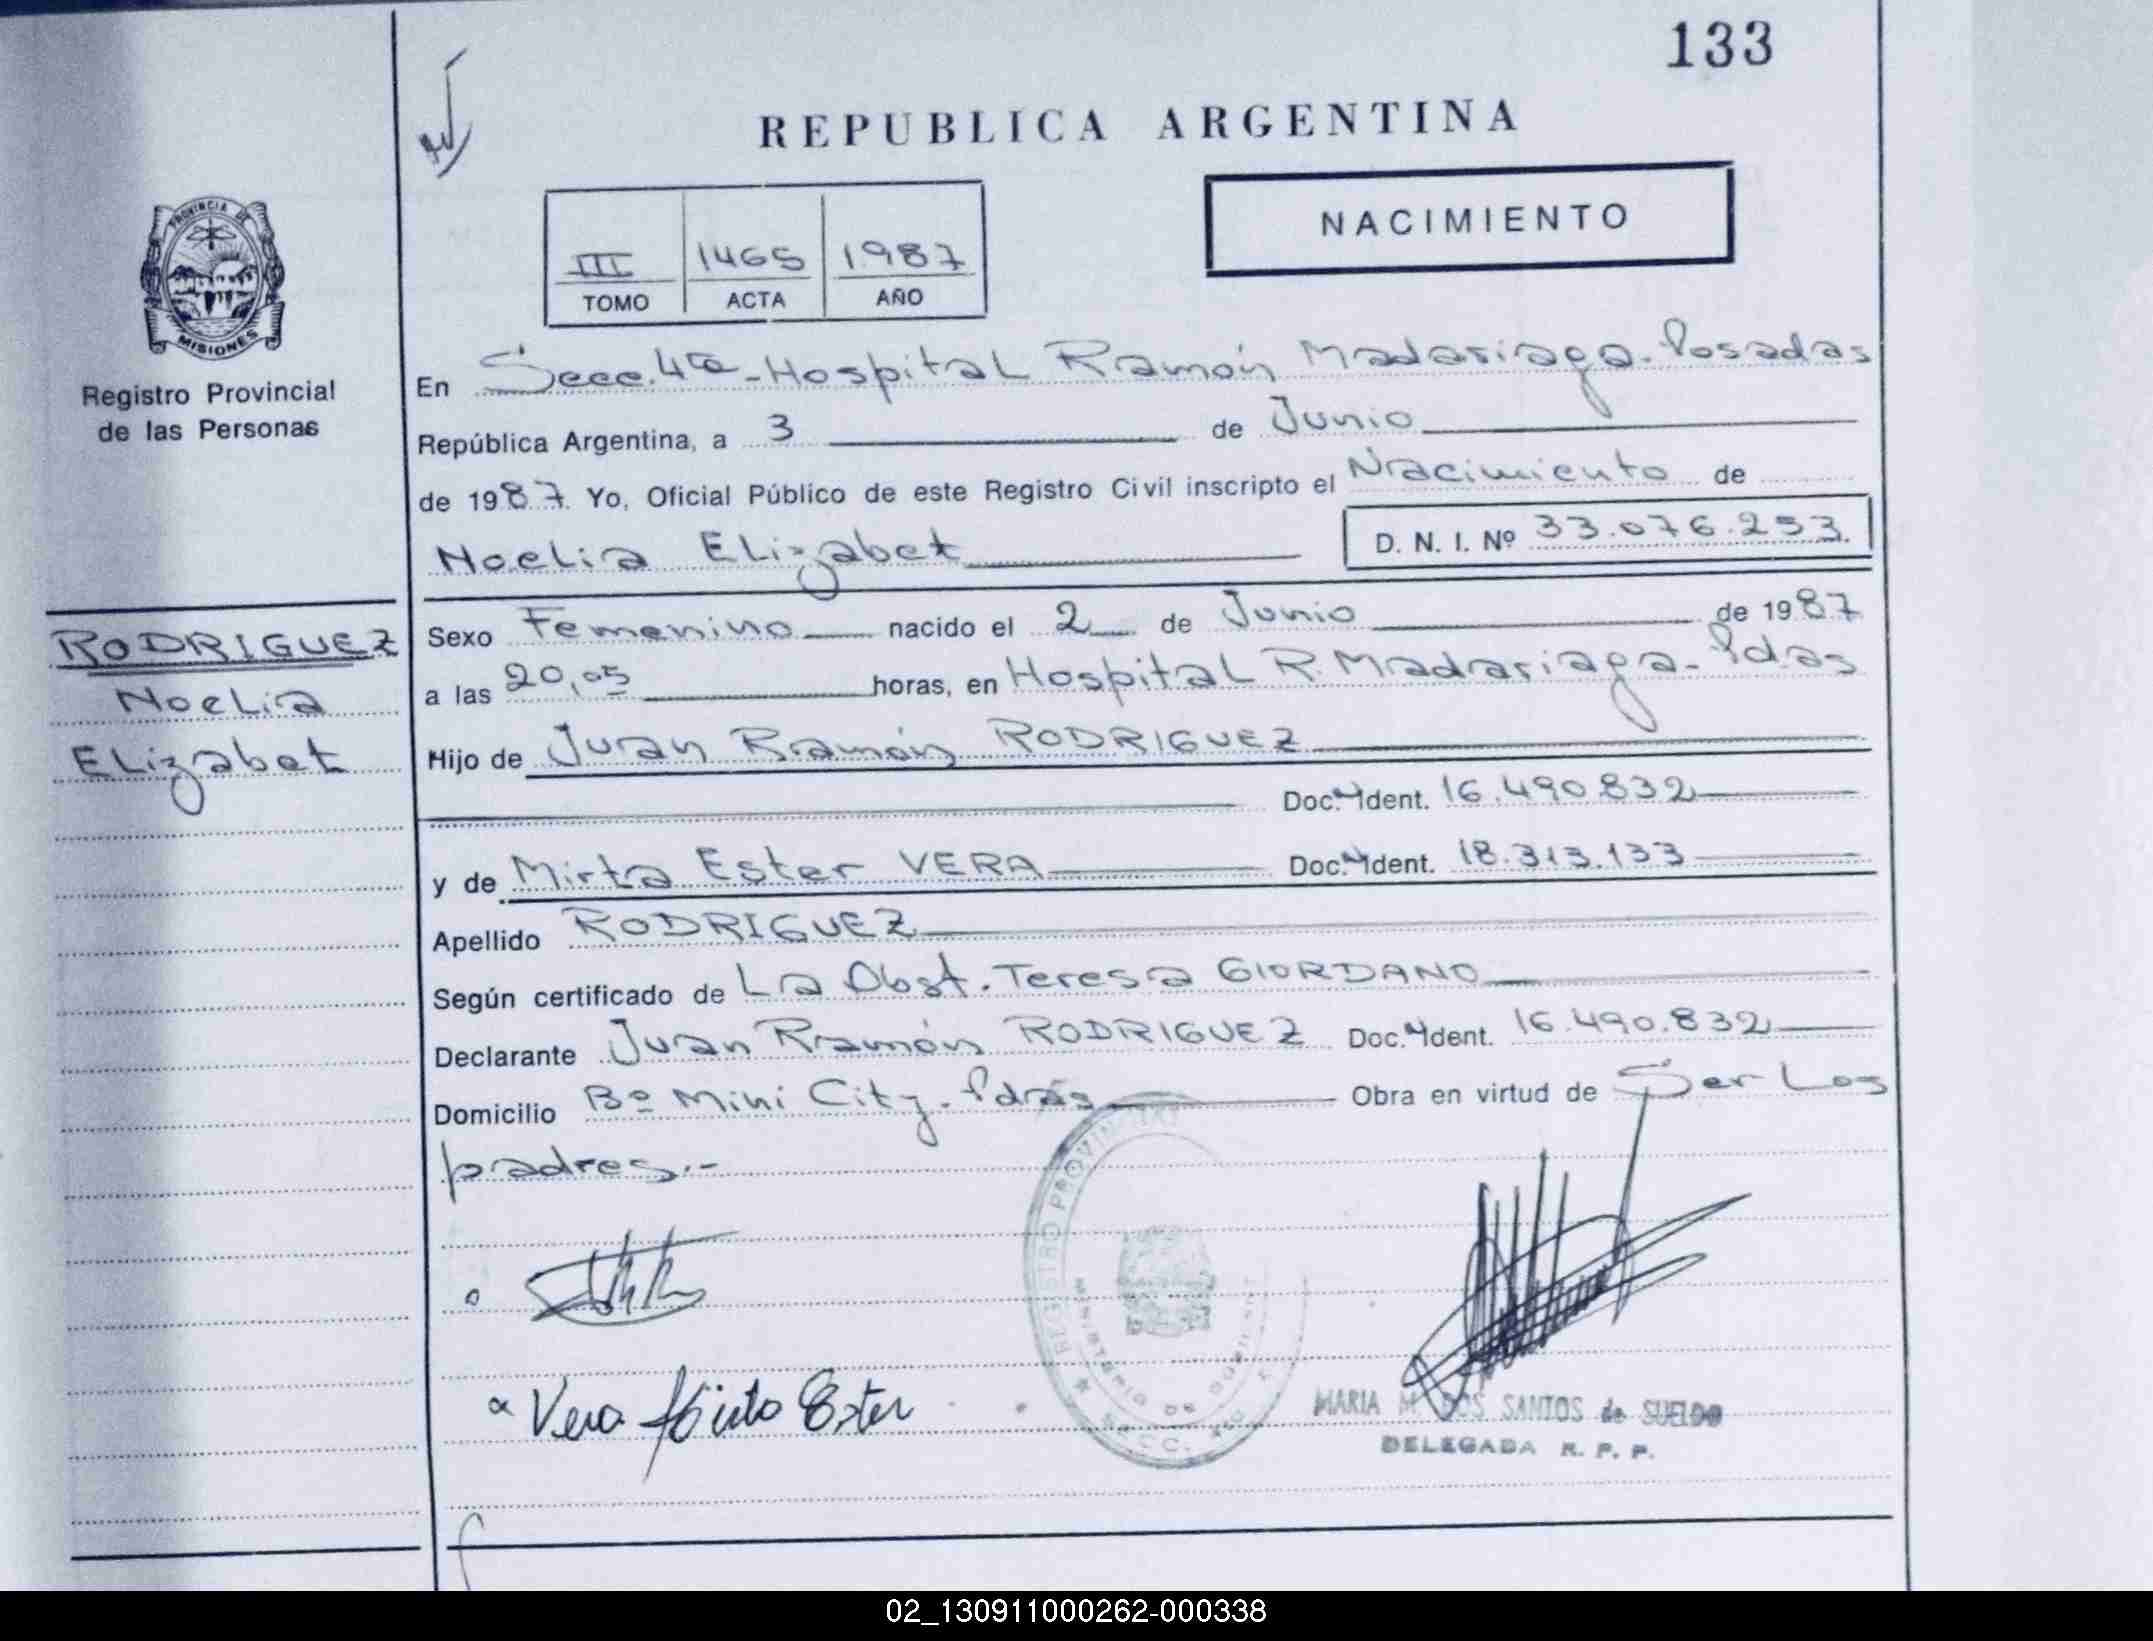 133
REPUBLICA ARGENTINA
NACIMIENTO
III 1465 1987
TOMO ACTA AÑO
PROVINCIA DE
MISIONES
Registro Provincial
de las Personas
En Secc. 4ta - Hospital Ramón Madariaga - Posadas
República Argentina, a 3 de Junio
de 1987. Yo, Oficial Público de este Registro Civil inscripto el Nacimiento de
Noelia Elizabet D. N. I. Nº 33.076.253.
RODRIGUEZ
Noelia
Elizabet
Sexo Femenino nacido el 2 de Junio de 1987
a las 20,05 horas, en Hospital R. Madariaga - Pdas
Hijo de Juan Ramón RODRIGUEZ
Doc. Ident. 16.490.832
y de Mirta Ester VERA Doc. Ident. 18.313.133
Apellido RODRIGUEZ
Según certificado de La Obst. Teresa GIORDANO
Declarante Juan Ramón RODRIGUEZ Doc. Ident. 16.490.832
Domicilio Bº Mini City - Pdas Obra en virtud de Ser Los
padres.-
REGISTRO PROVINCIAL
MINISTERIO DE
Vera Mirta Ester
MARIA M. DOS SANTOS de SUELDO
DELEGADA R. P. P.
02_130911000262-000338